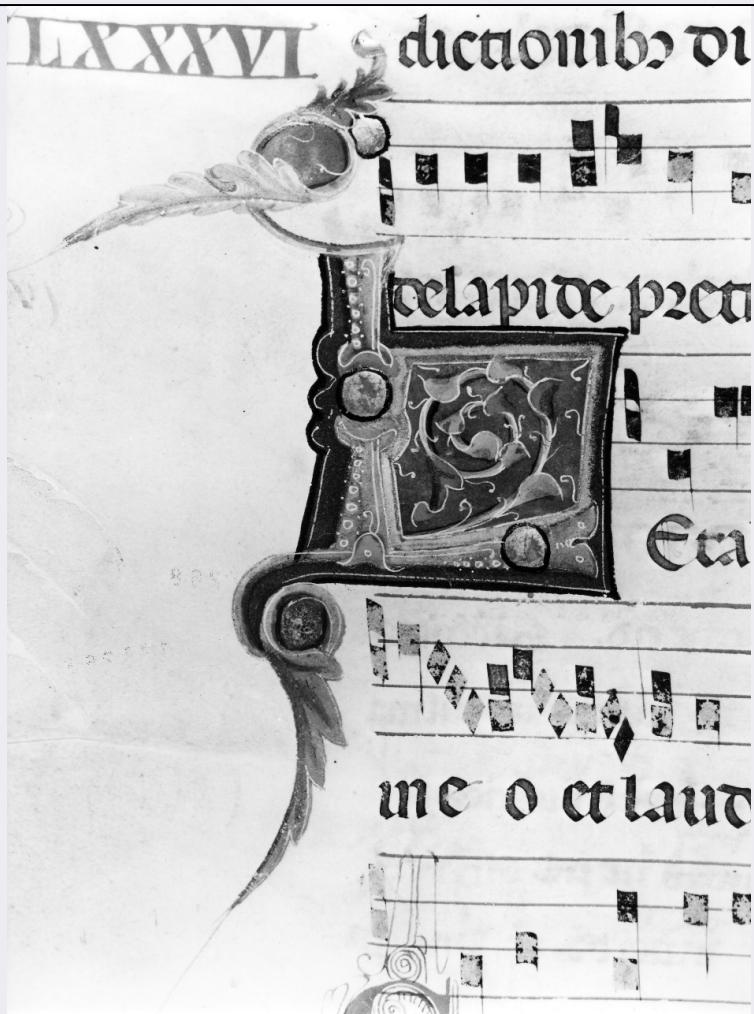 LXXXVI
dictionibꝫ di
de lapide preti
LEta
in e o et laud